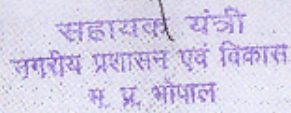 सहायक यंत्री
नगरीय प्रशासन एवं विकास
म. प्र. भोपाल